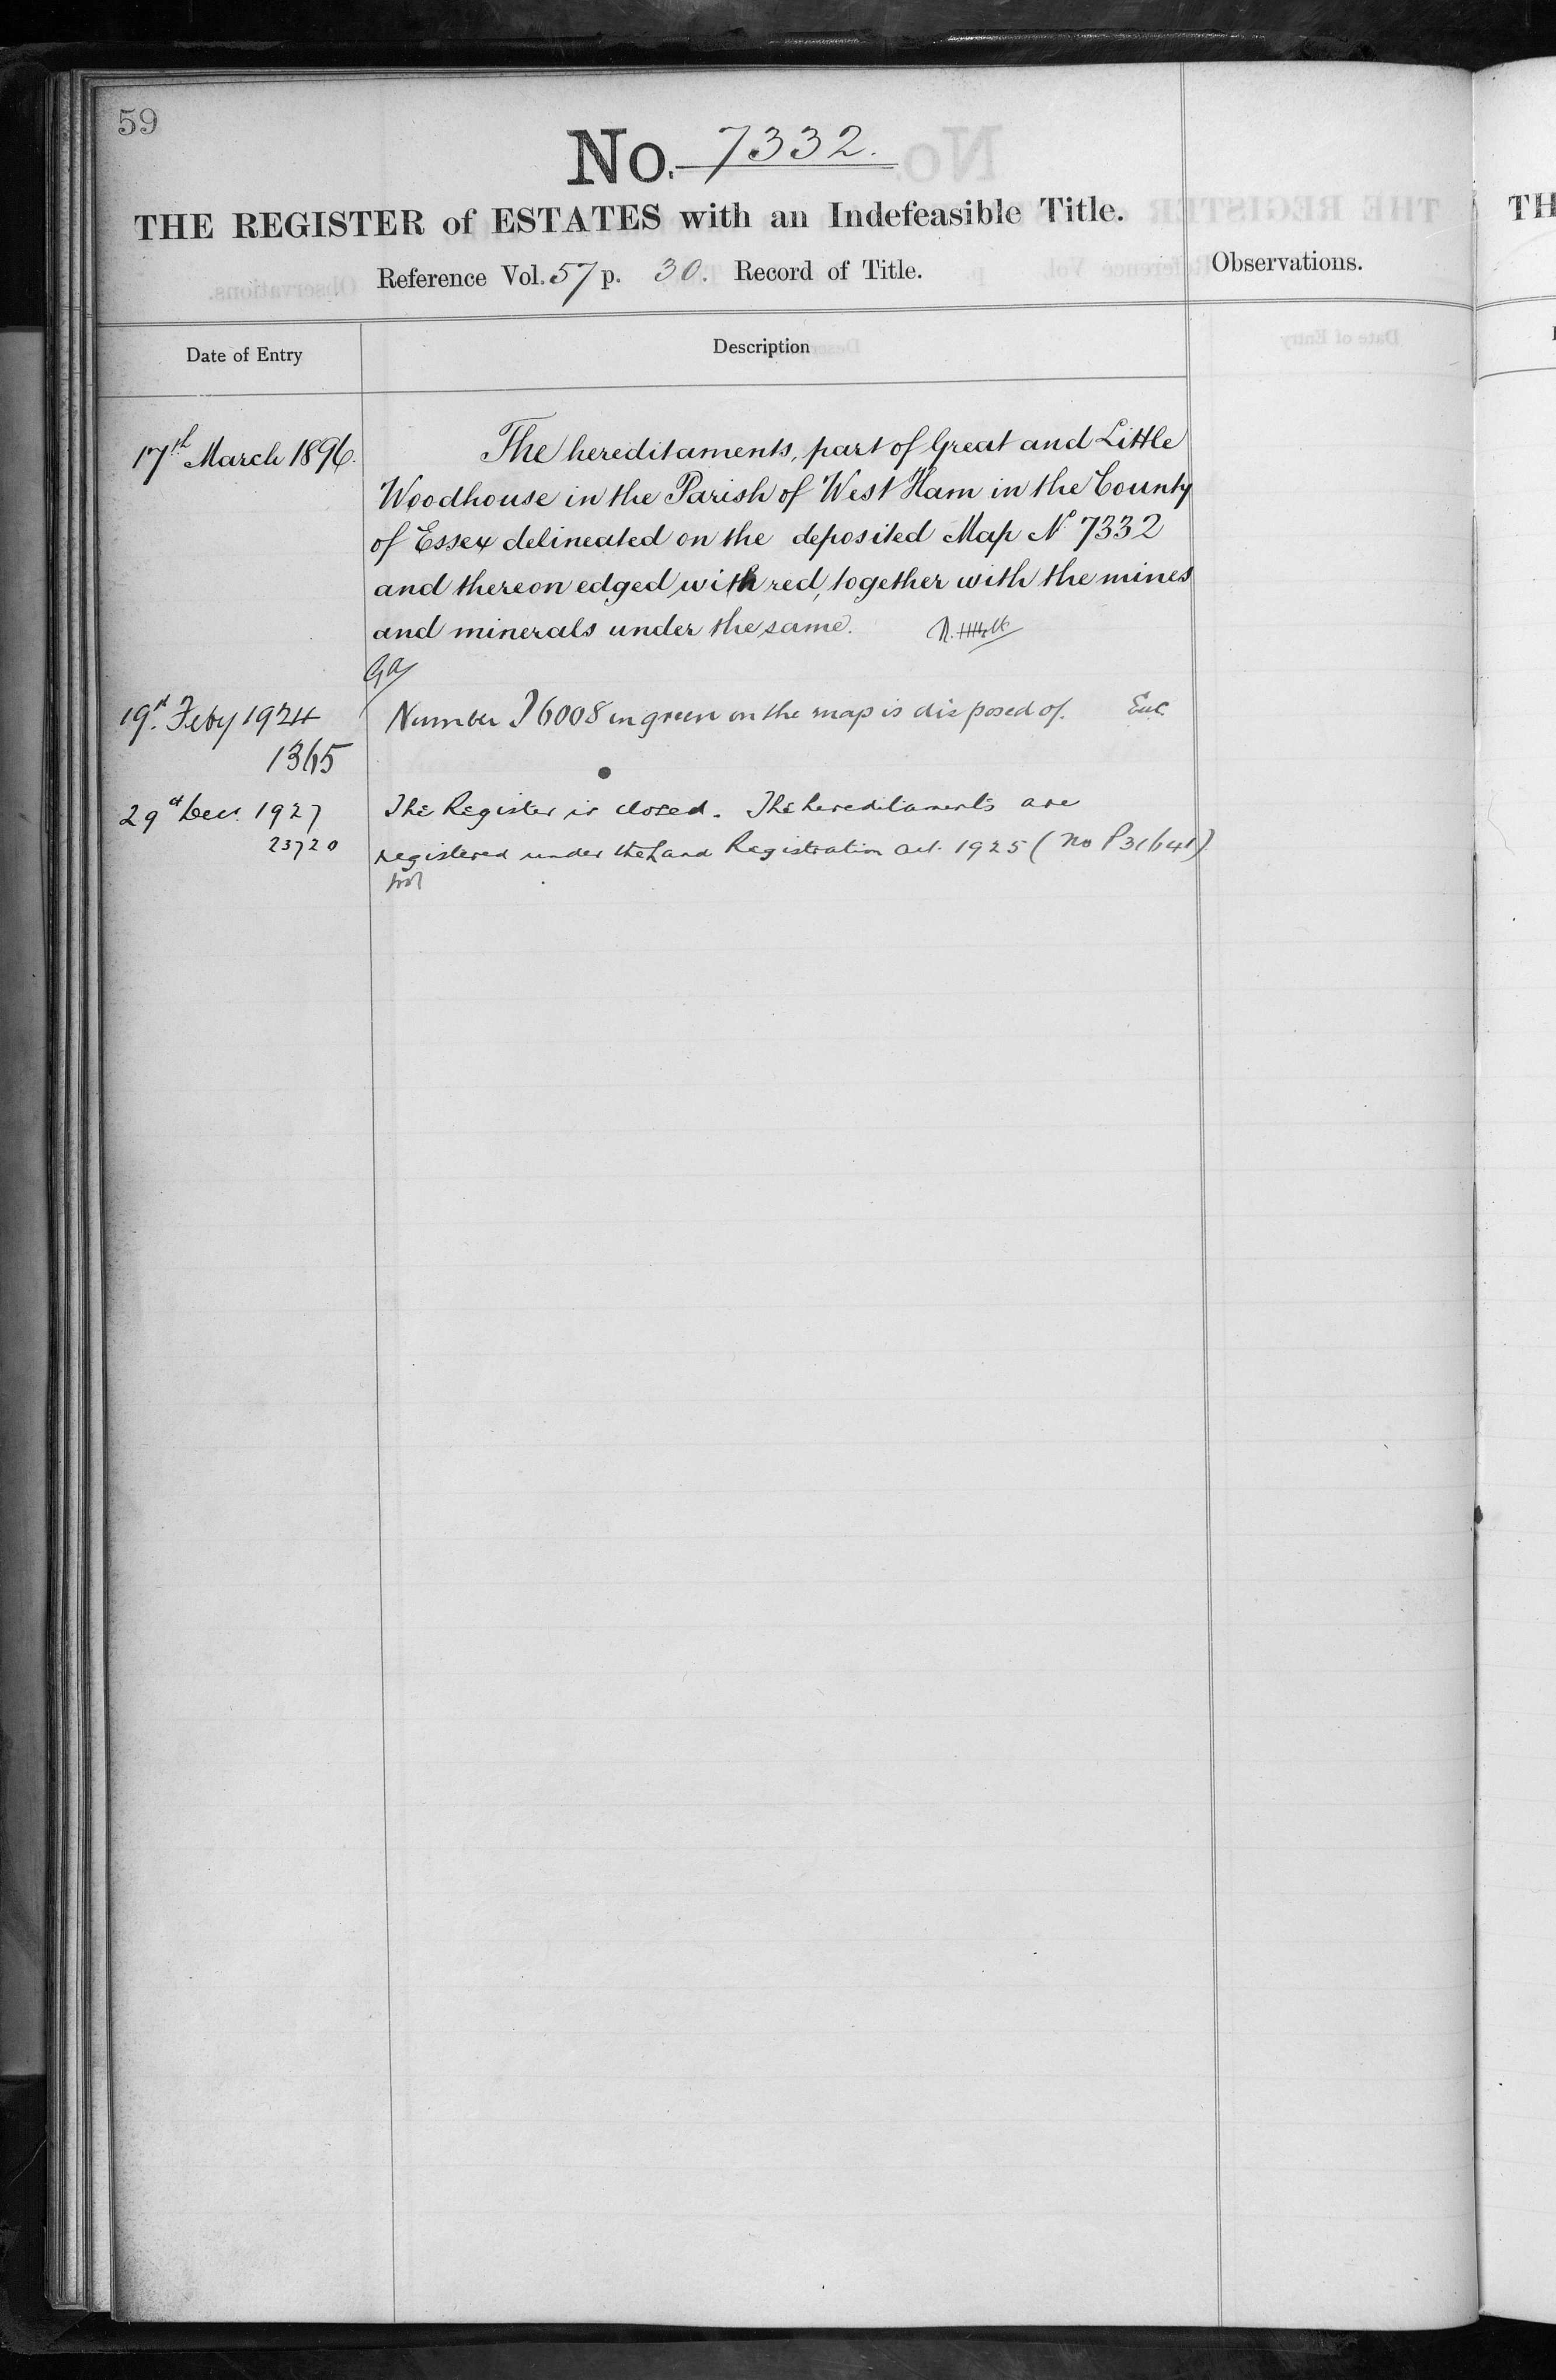 59
No. 7332.
THE REGISTER of ESTATES with an Indefeasible Title.
Reference Vol. 57 p. 30. Record of Title.
Observations.
Date of Entry
Description
17th March 1896.
The hereditaments, part of Great and Little
Woodhouse in the Parish of West Ham in the County
of Essex delineated on the deposited Map No 7332
and thereon edged with red, together with the mines
and minerals under the same.
19th Feby 1924
Number P6008 in green on the map is disposed of.
1365
29th Decr. 1927
The Register is closed. The hereditaments are
23720
registered under the Land Registration Act. 1925 (No P31641).
TH